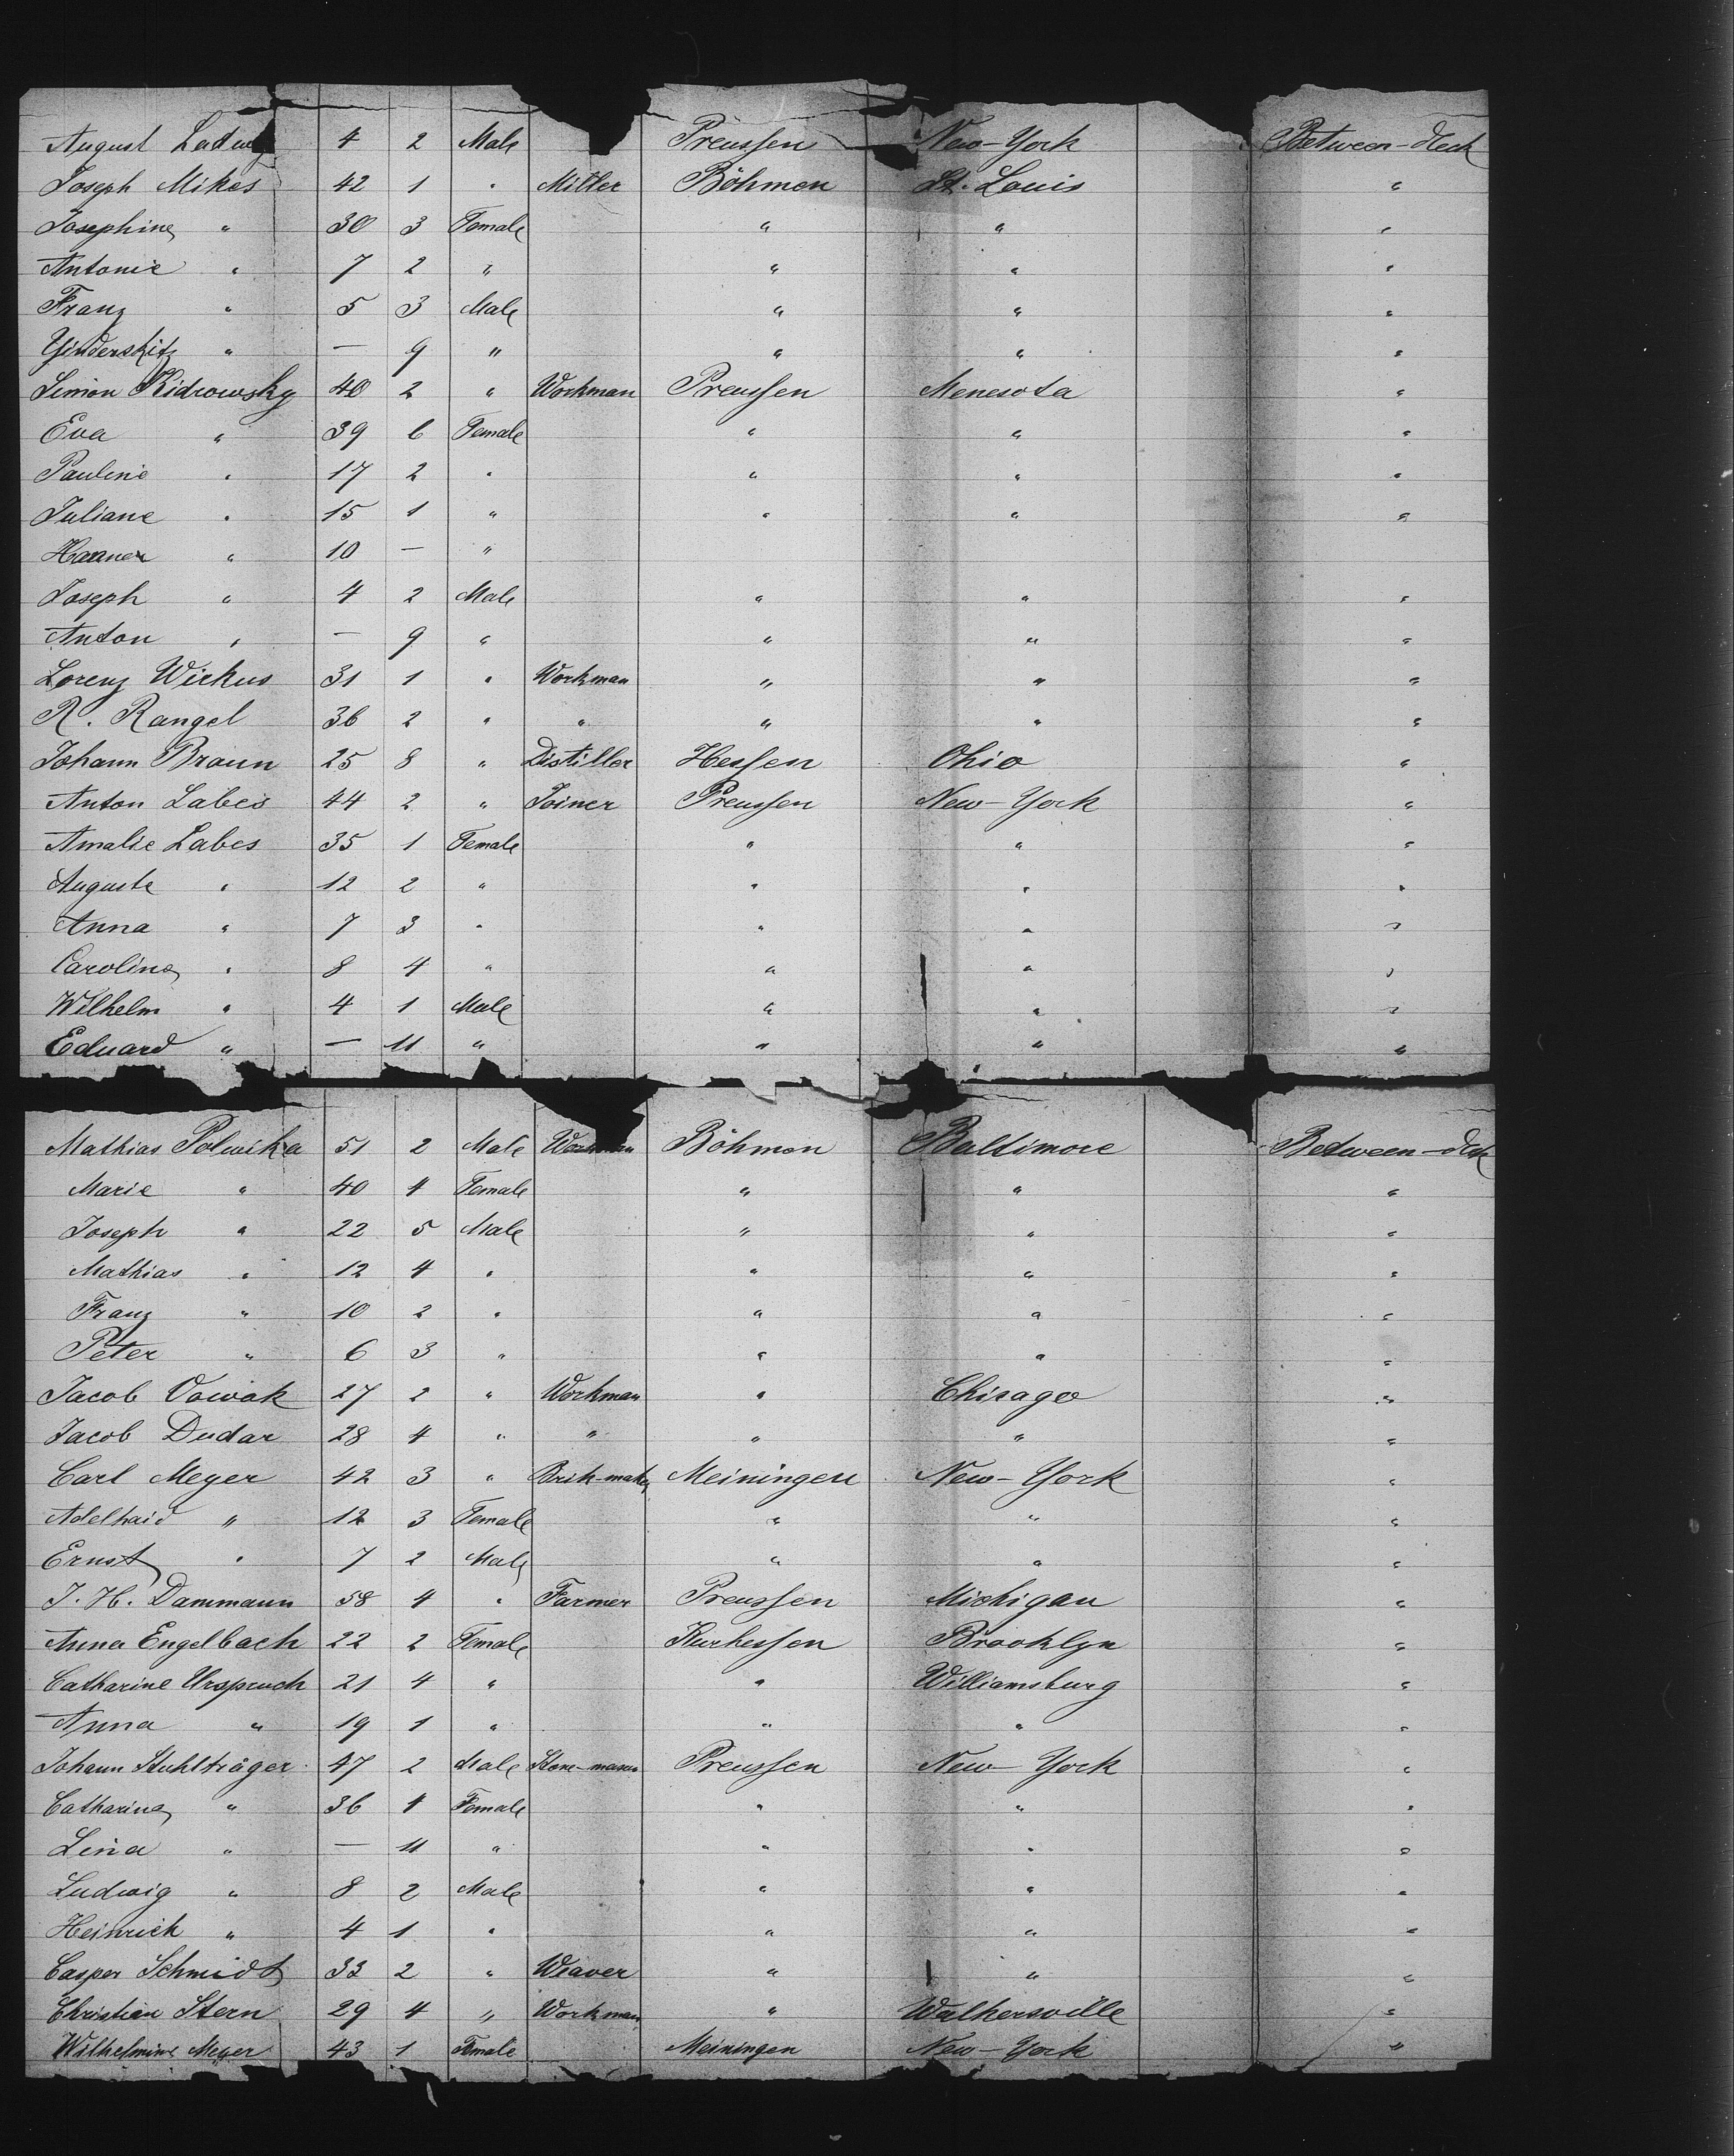 August Ludwig 4 2 Male Preussen New-York Between-deck
Joseph Mikes 42 1 " Miller Böhmen St. Louis "
Josephine " 30 3 Female " " "
Antonie " 7 2 " " " "
Franz " 5 3 Male " " "
" — 9 " " " "
Simon Kidrowsky 40 2 " Workman Preussen Menesota "
Eva " 39 6 Female " " "
Pauline " 17 2 " " " "
Juliane " 15 1 " " " "
" 10 — "
Joseph " 4 2 Male " " "
Anton " — 9 " " " "
Lorenz Wickus 31 1 " Workman " " "
R. Rangel 36 2 " " " " "
Johann Braun 25 8 " Distiller Hessen Ohio "
Anton Labes 44 2 " Joiner Preussen New-York "
Amalie Labes 35 1 Female " " "
Auguste " 12 2 " " " "
Anna " 7 3 " " " "
Caroline " 8 4 " " " "
Wilhelm " 4 1 Male " " "
Eduard " — 11 " " " "
Mathias Polwika 51 2 Male Workman Böhmen Baltimore Between-deck
Marie " 40 4 Female " " "
Joseph " 22 5 Male " " "
Mathias " 12 4 " " " "
Franz " 10 2 " " " "
Peter " 6 3 " " " "
Jacob Vowak 27 2 " Workman " Chicago "
Jacob Dudar 28 4 " " " " "
Carl Meyer 42 3 " Brik-maker Meiningen New-York "
Adelhaid " 12 3 Female " " "
Ernst " 7 2 Male " " "
J. H. Dammann 58 4 " Farmer Preussen Michigan "
Anna Engelbach 22 2 Female Kurhessen Brooklyn "
Catharine Urspruch 21 4 " " Williamsburg "
Anna " 19 1 " " " "
Johann Stuhlträger 47 2 Male Stone-mason Preussen New-York "
Catharine " 36 4 Female " " "
Lina " — 11 " " " "
Ludwig " 8 2 Male " " "
Heinrich " 4 1 " " " "
Casper Schmidt 33 2 " Weaver " " "
Christian Stern 29 4 " Workman " Walkersville "
Wilhelmine Meyer 43 1 Female Meiningen New-York "